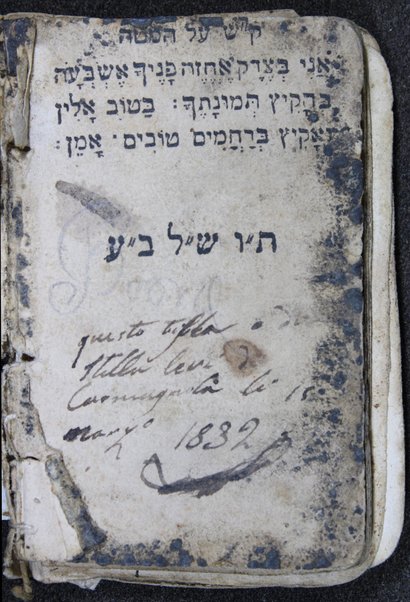 ק״ש על המטה
אני בְּצֶדֶק אֶחֱזֶה פָנֶיךָ אֶשְׂבְּעָה
בְהָקִיץ תְּמוּנָתֶךָ : בְּטוֹב אָלִין
וְאָקִיץ בְּרַחֲמִים טוֹבִים · אָמֵן :
ת״ו ש״ל ב״ע
questo tefila è di
Stella levi
Carmagnola li 15
marzo 1832